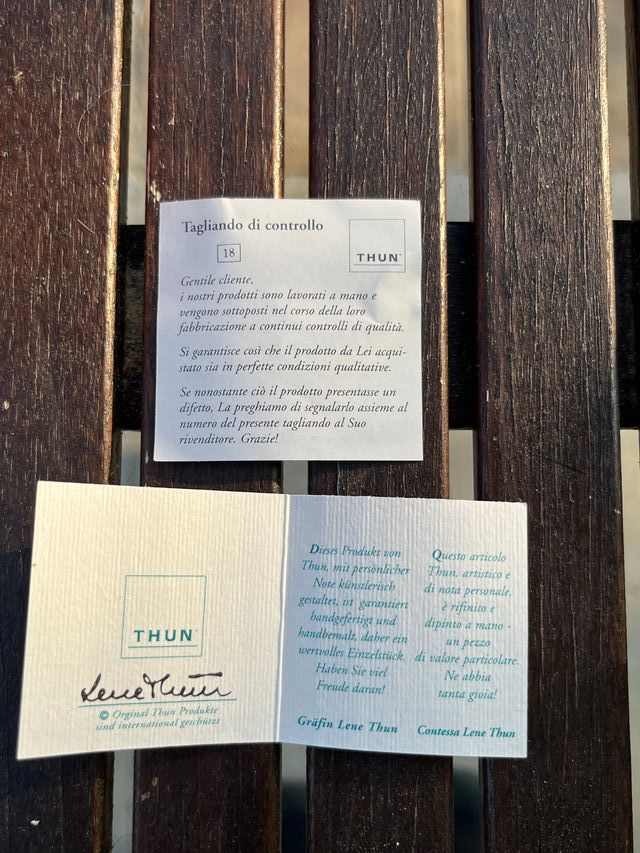 Tagliando di controllo
18
THUN
Gentile cliente,
i nostri prodotti sono lavorati a mano e
vengono sottoposti nel corso della loro
fabbricazione a continui controlli di qualità.
Si garantisce così che il prodotto da Lei acqui-
stato sia in perfette condizioni qualitative.
Se nonostante ciò il prodotto presentasse un
difetto, La preghiamo di segnalarlo assieme al
numero del presente tagliando al Suo
rivenditore. Grazie!
THUN
Lene Thun
© Orginal Thun Produkte
sind international geschützt
Dieses Produkt von
Thun, mit persönlicher
Note künstlerisch
gestaltet, ist garantiert
handgefertigt und
handbemalt, daher ein
wertvolles Einzelstück.
Haben Sie viel
Freude daran!
Gräfin Lene Thun
Questo articolo
Thun, artistico e
di nota personale,
è rifinito e
dipinto a mano -
un pezzo
di valore particolare.
Ne abbia
tanta gioia!
Contessa Lene Thun